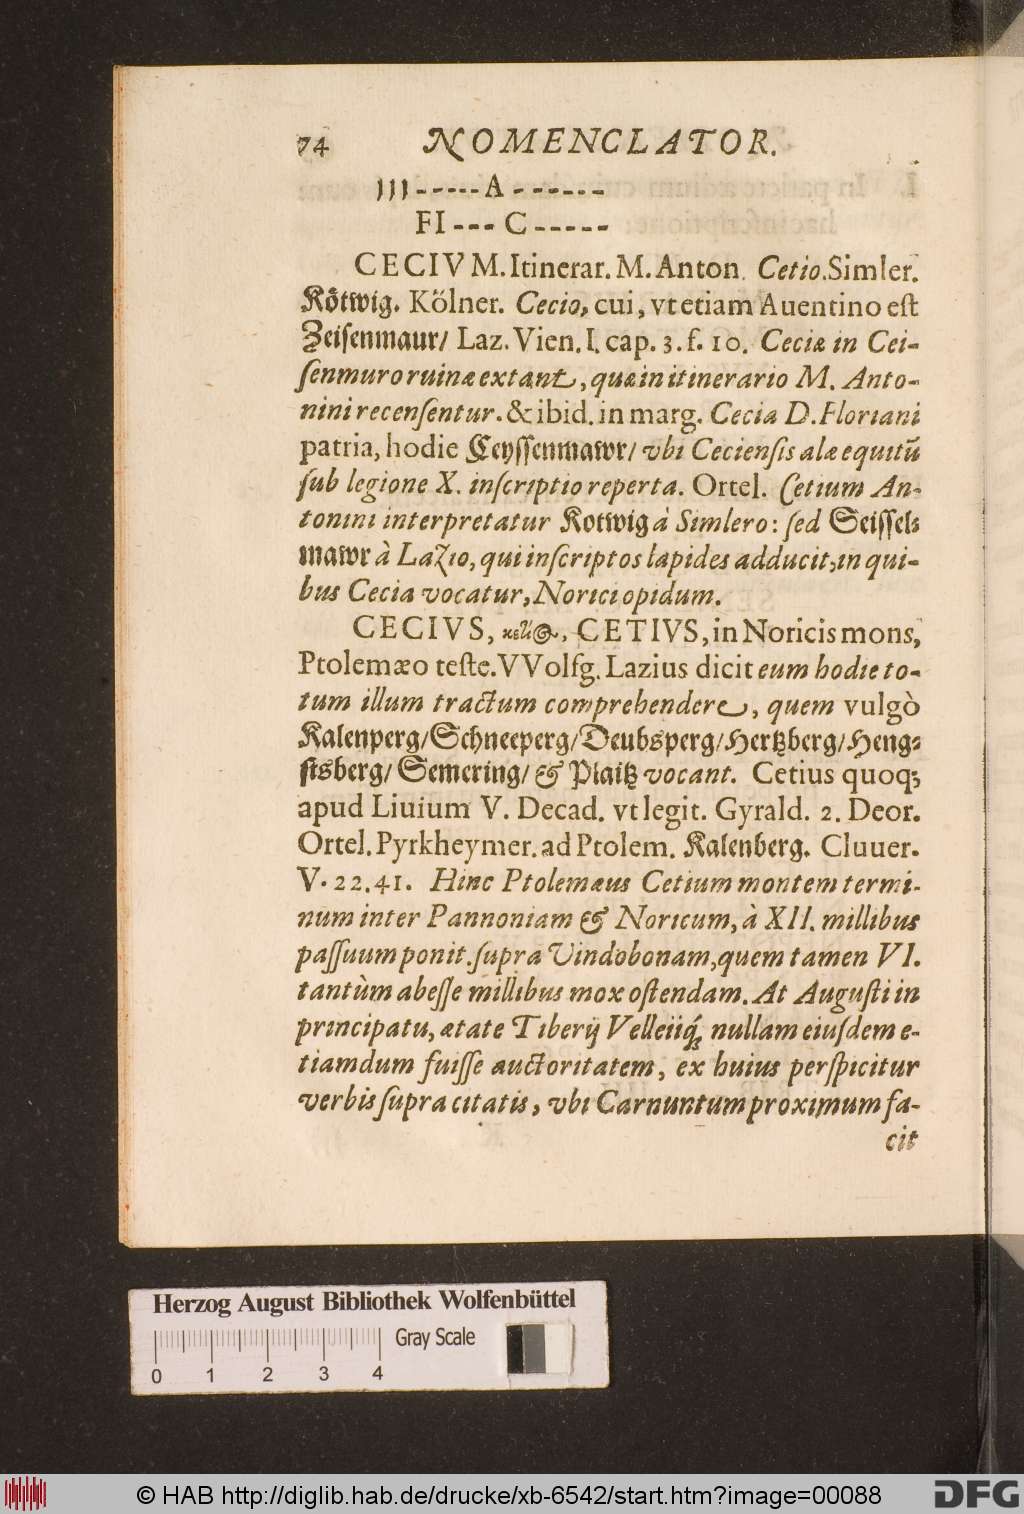 74 NOMENCLATOR.
))) - - - - - A - - - - - -
FI - - - C - - - - -
CECIVM. Itinerar. M. Anton. Cetio. Simler.
Kötwig. Kölner. Cecio, cui, vt etiam Auentino est
Zeisenmaur/ Laz. Vien. I. cap. 3. f. 10. Ceciæ in Cei-
senmuro ruinæ extant, quæ in itinerario M. Anto-
nini recensentur. & ibid. in marg. Cecia D. Floriani
patria, hodie Ceyssenmawr/ vbi Ceciensis alæ equitũ
sub legione X. inscriptio reperta. Ortel. Cetium An-
tonini interpretatur Kotwig à Simlero: sed Seissel-
mawr à Lazio, qui inscriptos lapides adducit, in qui-
bus Cecia vocatur, Norici opidum.
CECIVS, CETIVS, in Noricis mons,
Ptolemæo teste. VVolfg. Lazius dicit eum hodie to-
tum illum tractum comprehendere, quem vulgò
Kalenperg/ Schneeperg/ Deubsperg/ Hertzberg/ Heng-
stsberg/ Semering/ & Plaitz vocant. Cetius quoq;
apud Liuium V. Decad. vt legit. Gyrald. 2. Deor.
Ortel. Pyrkheymer. ad Ptolem. Kalenberg. Cluuer.
V. 22. 41. Hinc Ptolemæus Cetium montem termi-
num inter Pannoniam & Noricum, à XII. millibus
passuum ponit. supra Vindobonam, quem tamen VI.
tantùm abesse millibus mox ostendam. At Augusti in
principatu, ætate Tiberij Velleiiq́; nullam eiusdem e-
tiamdum fuisse auctoritatem, ex huius perspicitur
verbis supra citatis, vbi Carnuntum proximum fa-
cit
Herzog August Bibliothek Wolfenbüttel
Gray Scale
0 1 2 3 4
© HAB http://diglib.hab.de/drucke/xb-6542/start.htm?image=00088
DFG